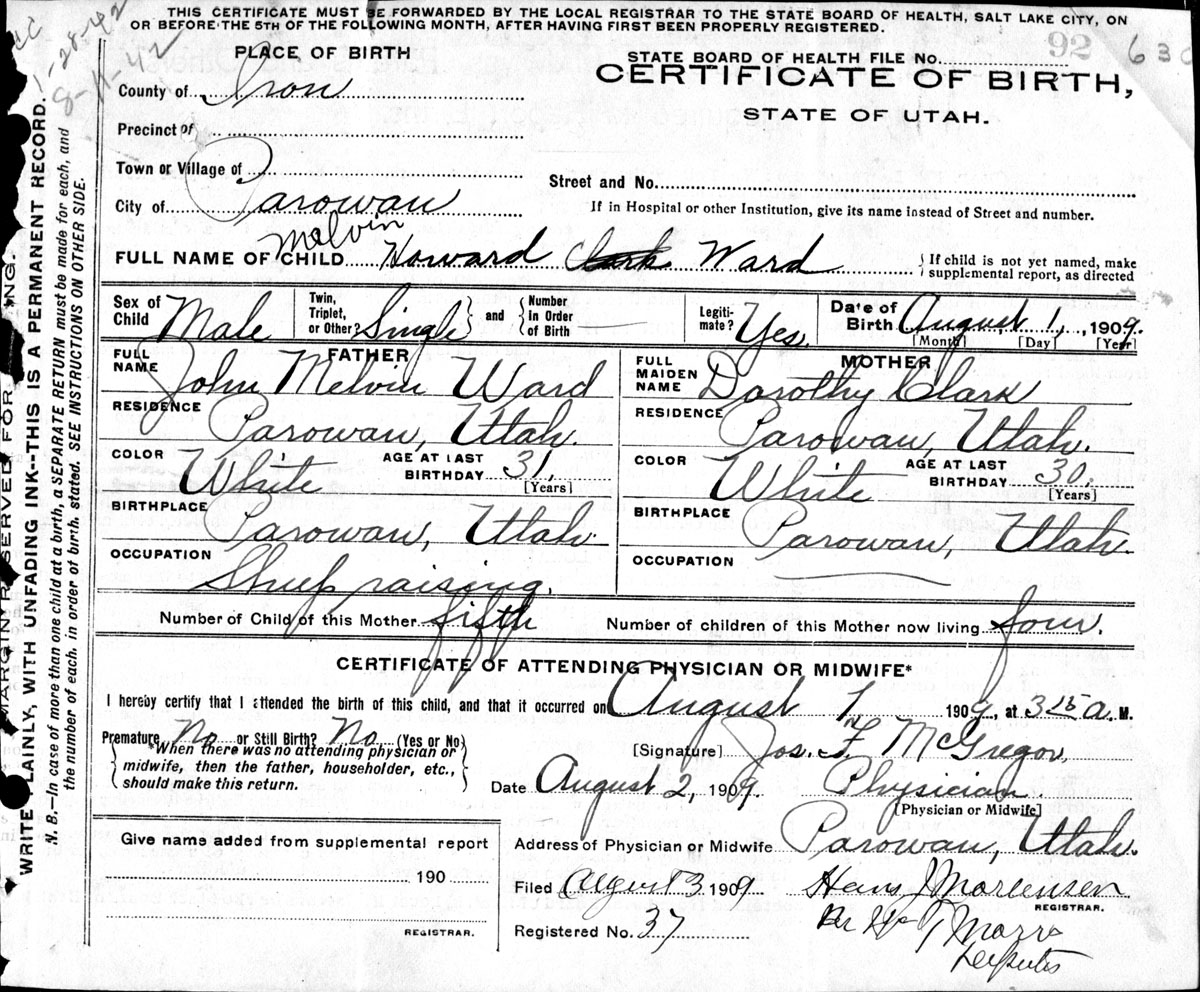 THIS CERTIFICATE MUST BE FORWARDED BY THE LOCAL REGISTRAR TO THE STATE BOARD OF HEALTH, SALT LAKE CITY, ON
OR BEFORE THE 5TH OF THE FOLLOWING MONTH, AFTER HAVING FIRST BEEN PROPERLY REGISTERED.
1-28-42
8-11-42
92 630
PLACE OF BIRTH
STATE BOARD OF HEALTH FILE No.
CERTIFICATE OF BIRTH,
STATE OF UTAH.
County of Iron
Precinct of
Town or Village of
Street and No.
City of Parowan
If in Hospital or other Institution, give its name instead of Street and number.
Melvin
FULL NAME OF CHILD Howard Clark Ward
If child is not yet named, make
supplemental report, as directed
Sex of Child Male
Twin, Triplet, or Other? Single
and Number in Order of Birth
Legitimate? Yes.
Date of Birth August 1, 1909.
[Month] [Day] [Year]
FATHER
FULL NAME John Melvin Ward
RESIDENCE Parowan, Utah.
COLOR White
AGE AT LAST BIRTHDAY 31, [Years]
BIRTHPLACE Parowan, Utah.
OCCUPATION Sheep raising.
MOTHER
FULL MAIDEN NAME Dorothy Clark
RESIDENCE Parowan, Utah.
COLOR White
AGE AT LAST BIRTHDAY 30. [Years]
BIRTHPLACE Parowan, Utah.
OCCUPATION
Number of Child of this Mother fifth
Number of children of this Mother now living four.
CERTIFICATE OF ATTENDING PHYSICIAN OR MIDWIFE*
I hereby certify that I attended the birth of this child, and that it occurred on August 1, 1909, at 3 15 a. M.
Premature No or Still Birth? No. (Yes or No)
*When there was no attending physician or
midwife, then the father, householder, etc.,
should make this return.
[Signature] Jos. F. McGregor,
Date August 2, 1909. Physician
[Physician or Midwife]
Give name added from supplemental report
190
REGISTRAR.
Address of Physician or Midwife Parowan, Utah.
Filed August 3 1909 Hans J Mortensen
REGISTRAR.
Registered No. 37
MARGIN RESERVED FOR
WRITE PLAINLY, WITH UNFADING INK--THIS IS A PERMANENT RECORD.
N. B.--In case of more than one child at a birth, a SEPARATE RETURN must be made for each, and
the number of each, in order of birth, stated. SEE INSTRUCTIONS ON OTHER SIDE.